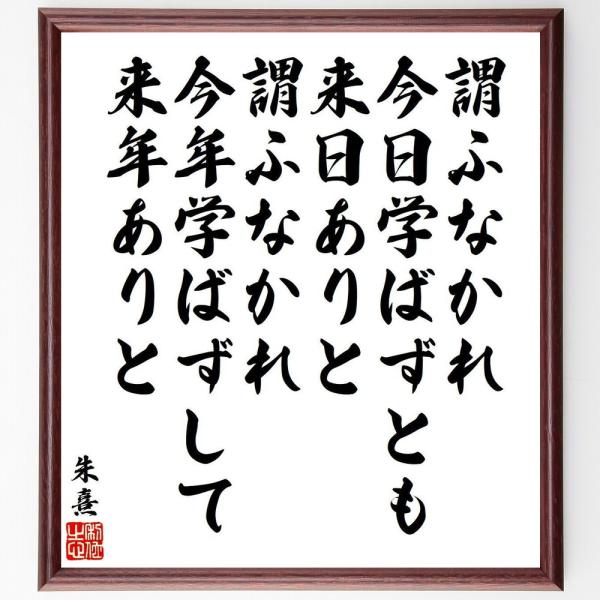 謂ふなかれ
今日学ばずとも
来日ありと
謂ふなかれ
今年学ばずして
来年ありと
朱熹